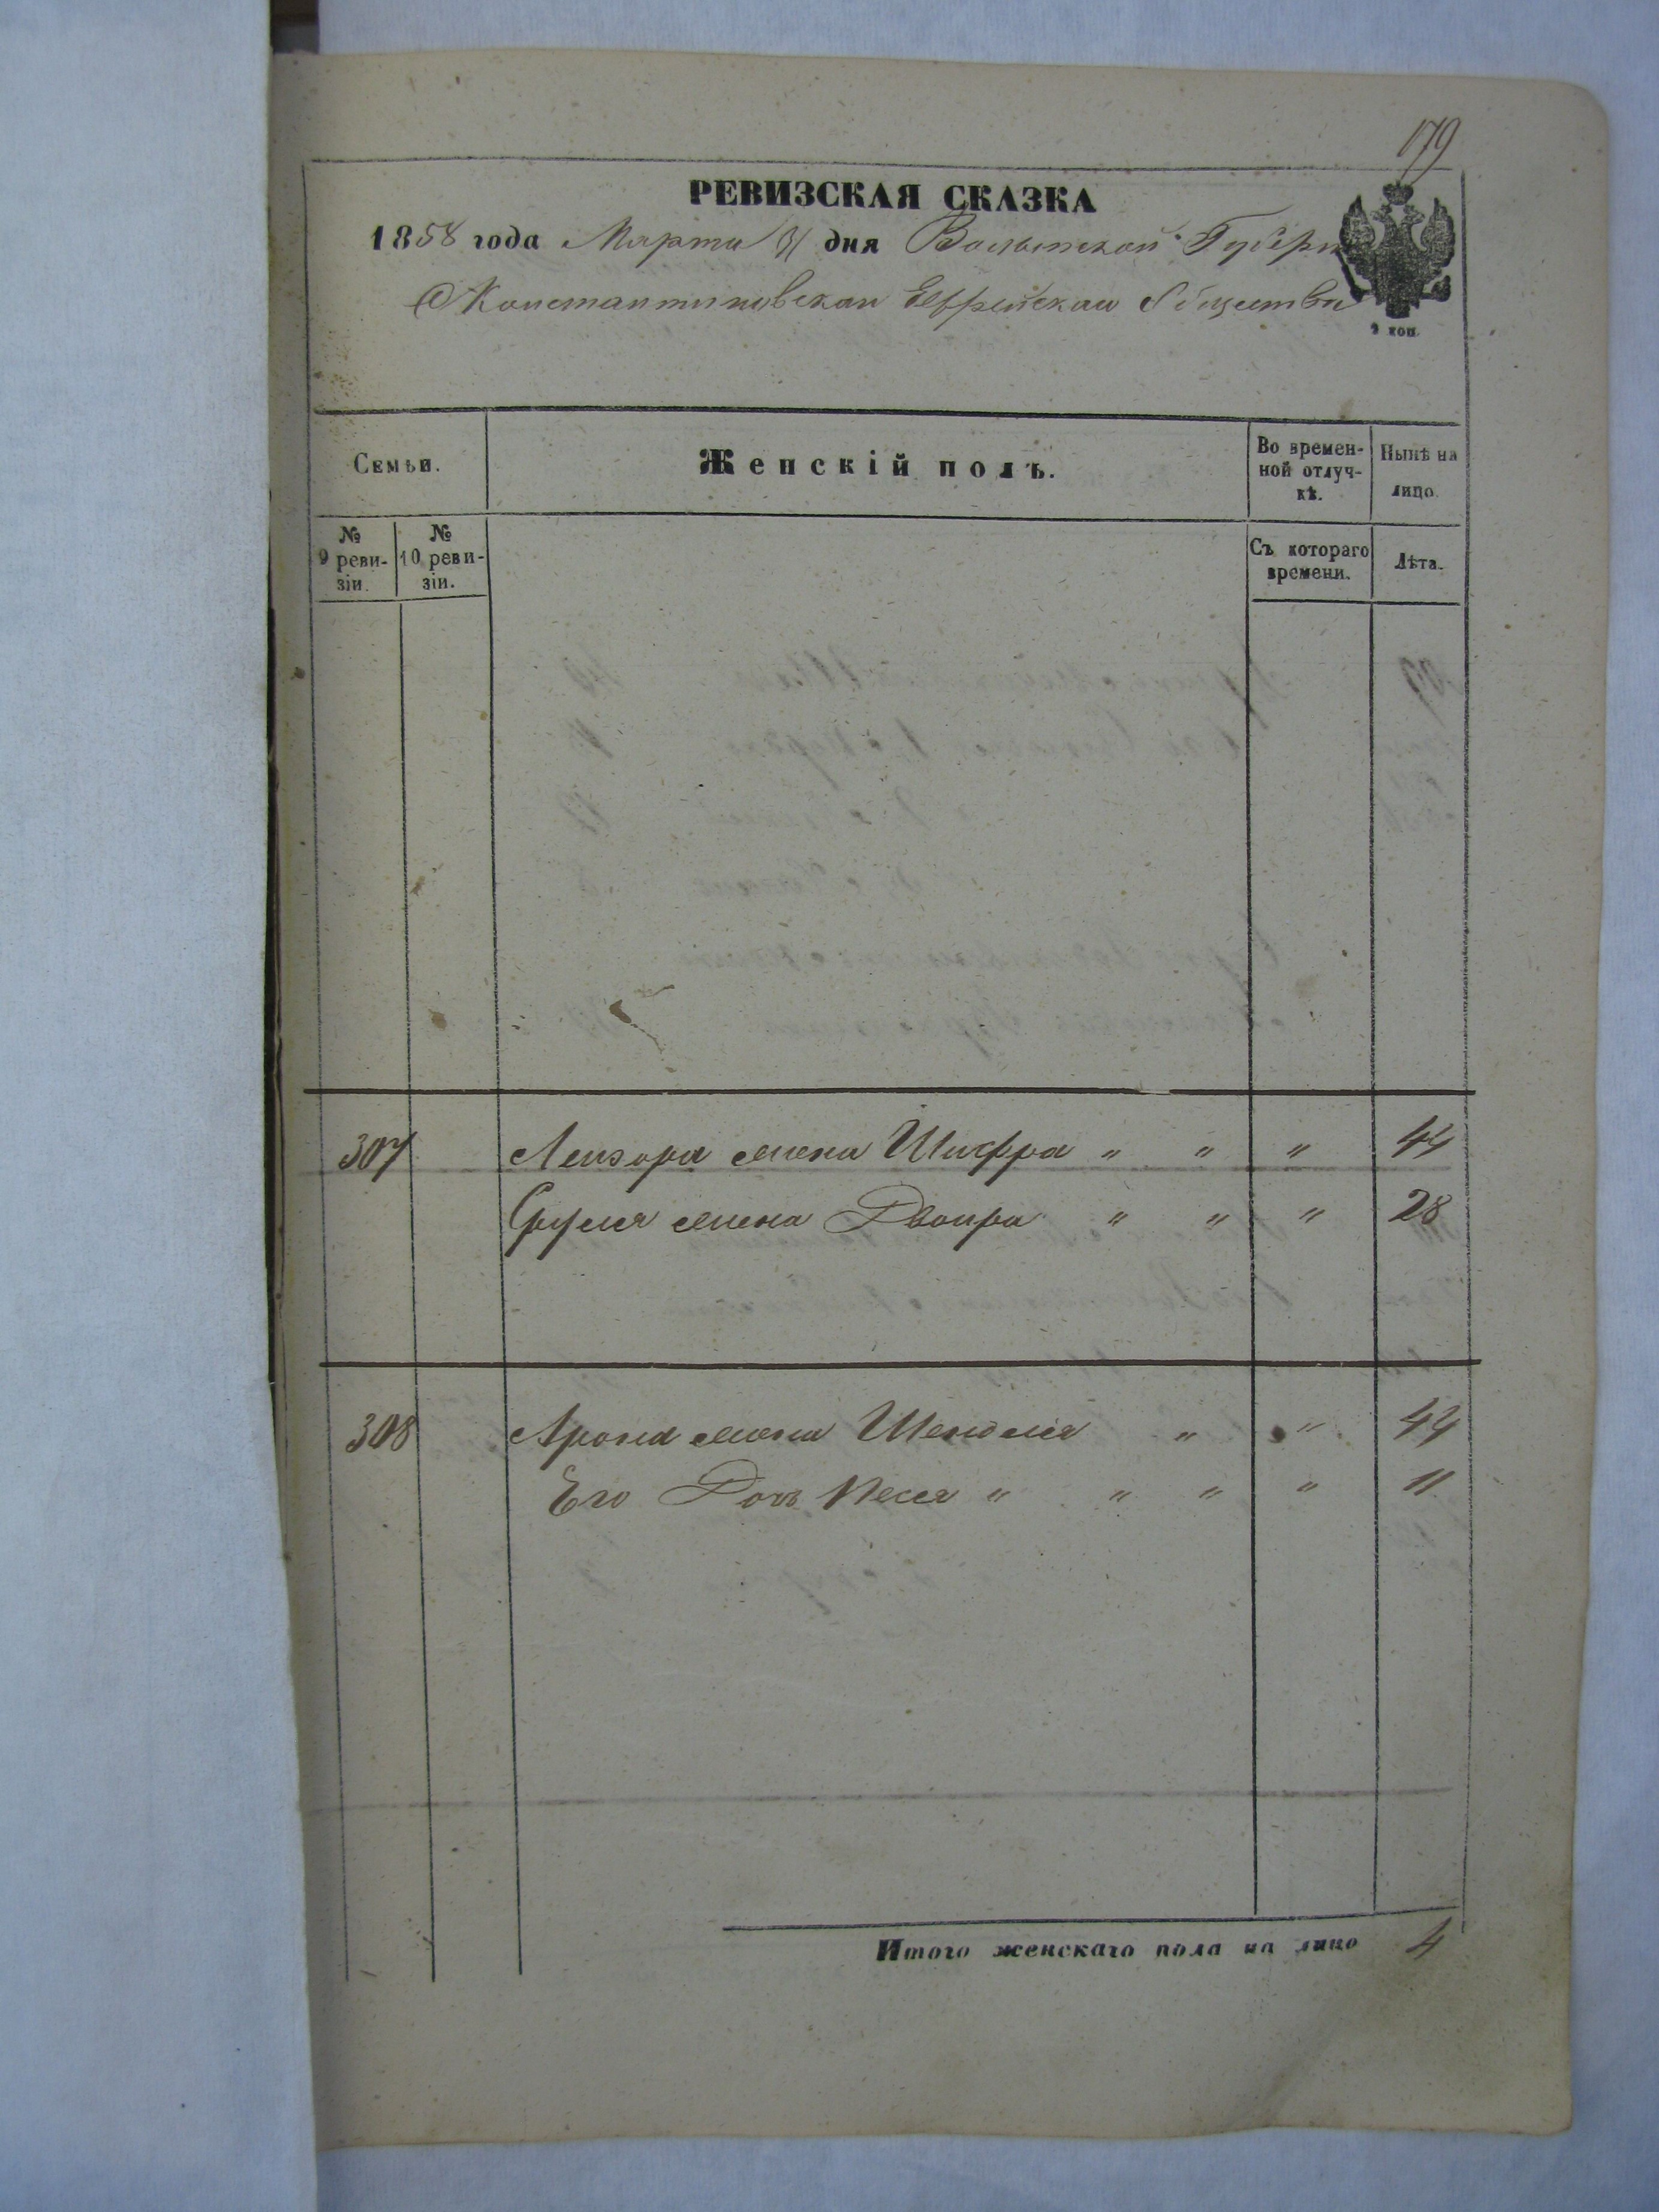 179
РЕВИЗСКАЯ СКАЗКА
1858 года Марта 31 дня Волынской Губерн
Константиновскаи Еврейскаи Общества
9 коп.
Семьи.
Женскій полъ.
Во времен-
ной отлуч-
кѣ.
Нынѣ на
лицо.
№
9 реви-
зіи.
№
10 реви-
зіи.
Съ котораго
времени.
Лѣта.
307 Лейзора жена Шифра " " " 44
Сруля жена Двойра " " " 28
308 Арона жена Шендля " " 44
Его Дочь Песя " " " " 11
Итого женскаго пола на лицо 4